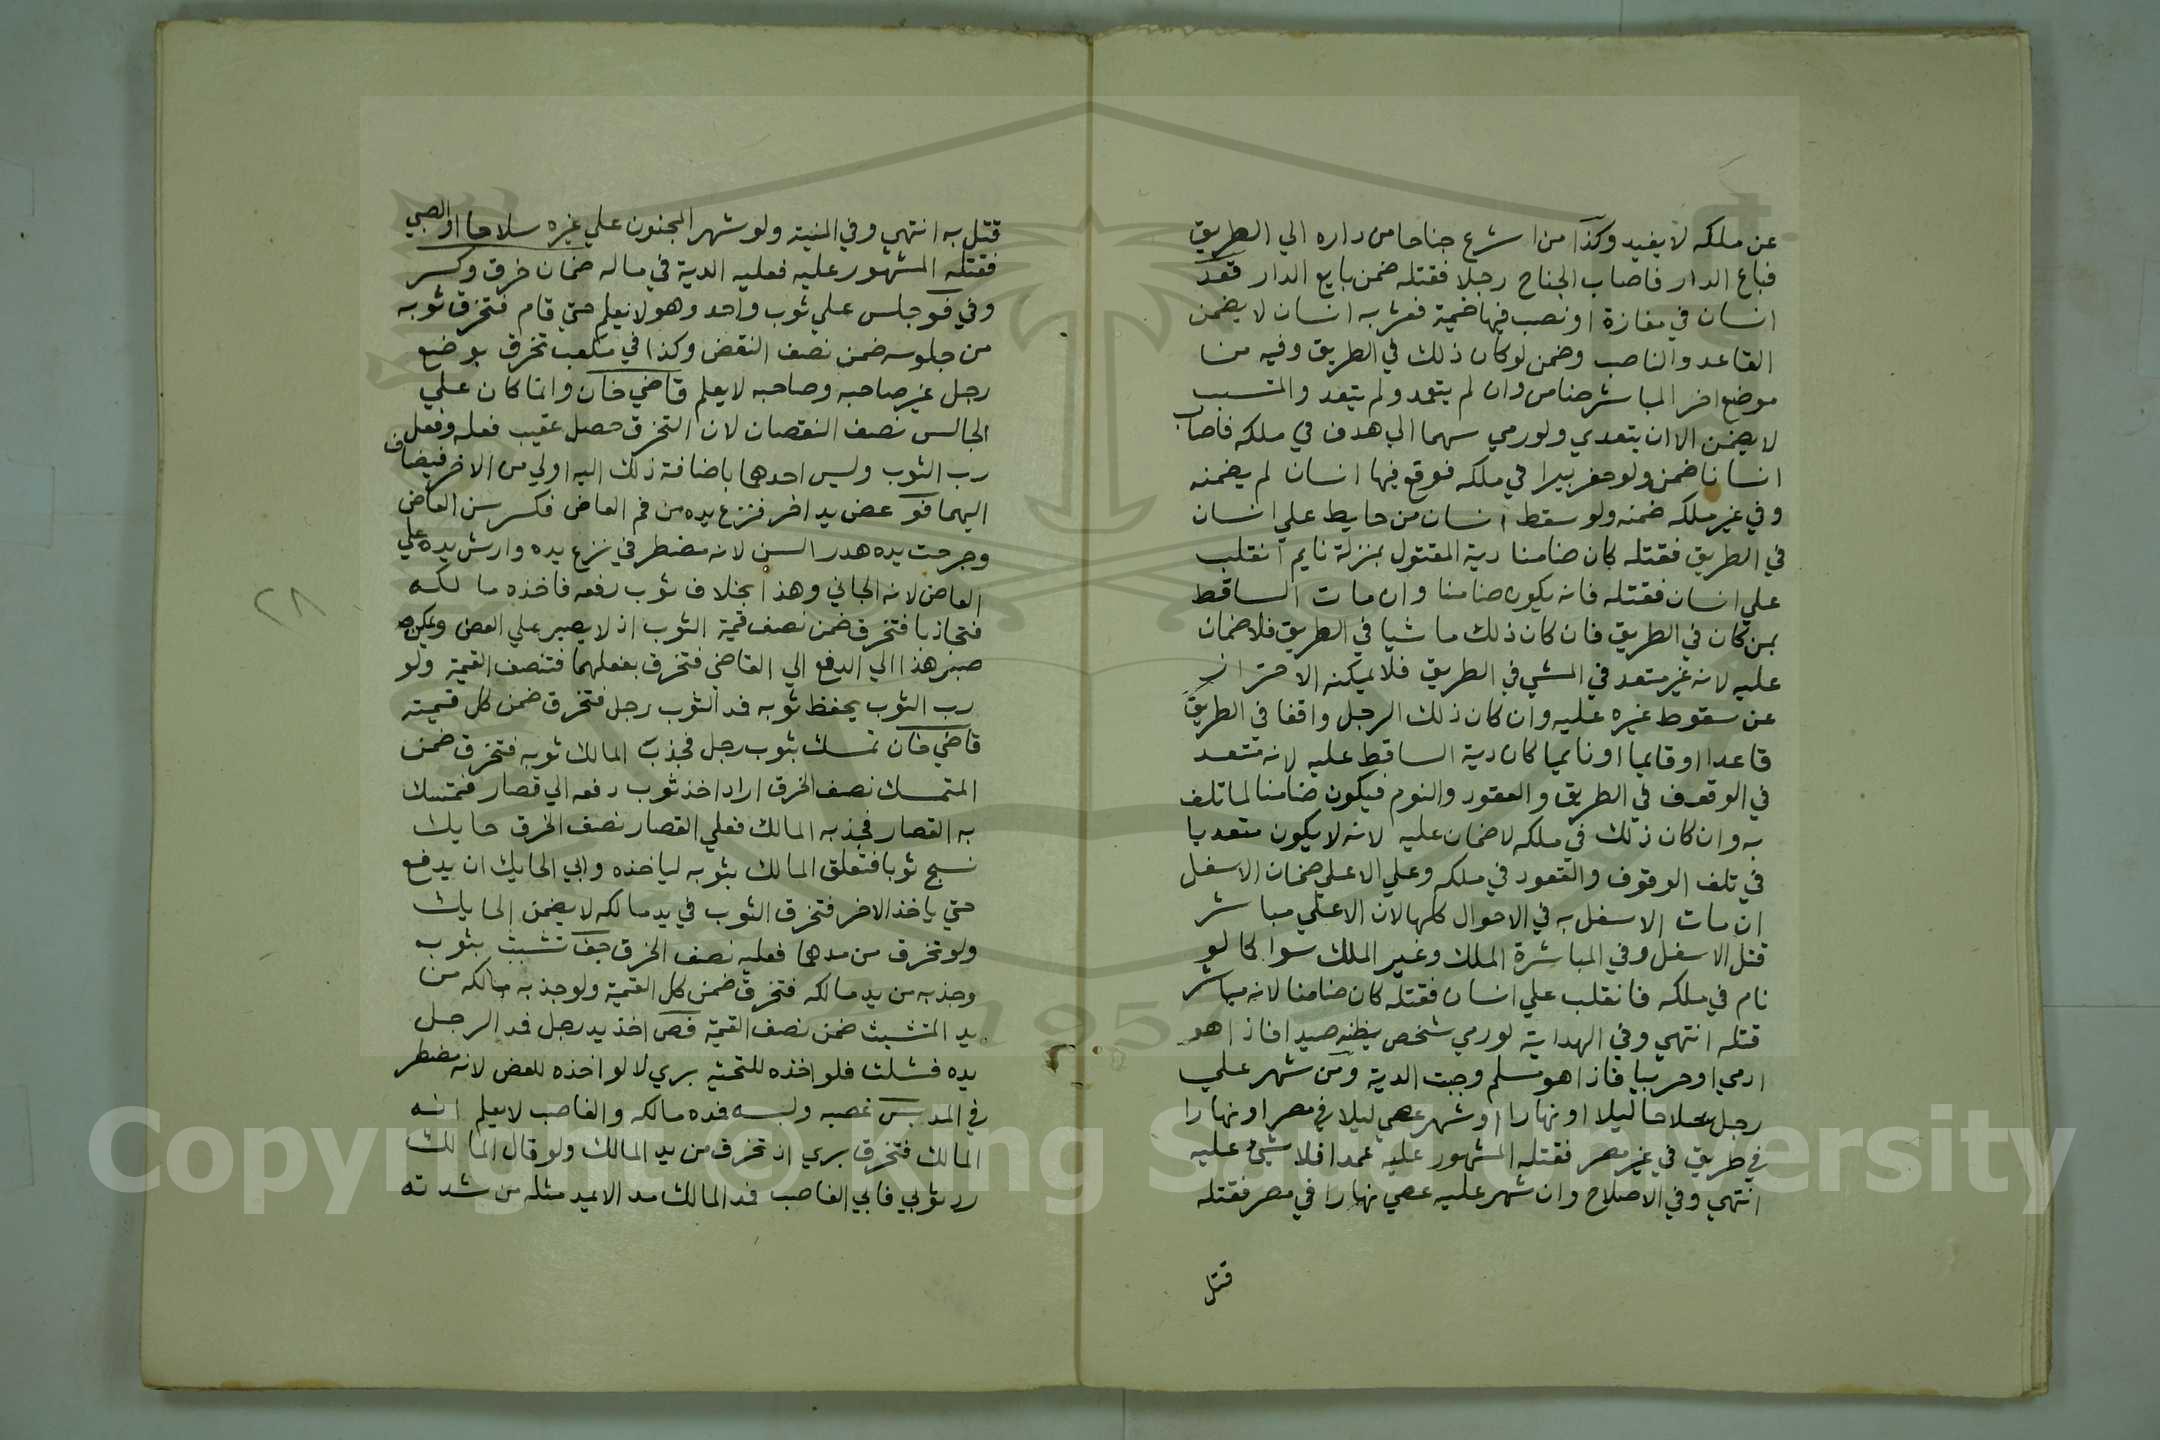 عن ملكه لا يفيد وكذا من اشرع جناحا من داره الي الطريق
فباع الدار فاصاب الجناح رجلا فقتله ضمن بايع الدار قعد
انسان في مفازة او نصب فيها خيمة فعثر به انسان لا يضمن
القاعد والناصب وضمن لو كان ذلك في الطريق وفيه من
موضع اخر المباشر ضامن وان لم يتعمد ولم يتعد والمتسبب
لا يضمن الا ان يتعدي ولو رمي سهما الي هدف في ملكه فاصاب
انسانا ضمن ولو حفر بيرا في ملكه فوقع فيها انسان لم يضمنه
وفي غير ملكه ضمنه ولو سقط انسان من حايط علي انسان
في الطريق فقتله كان ضامنا دية المقتول بمنزلة نايم انقلب
علي انسان فقتله فانه يكون ضامنا وان مات الساقط
بمن كان في الطريق فان كان ذلك ماشيا في الطريق فلا ضمان
عليه لانه غير متعد في المشي في الطريق فلا يمكنه الاحتراز
عن سقوط غيره عليه وان كان ذلك الرجل واقفا في الطريق
قاعدا او قايما او نايما كان دية الساقط عليه لانه متعد
في الوقوف في الطريق والعقود والنوم فيكون ضامنا لما تلف
به وان كان ذلك في ملكه لا ضمان عليه لانه لا يكون متعديا
في تلف الوقوف والقعود في ملكه وعلي الاعلي ضمان الاسفل
ان مات الاسفل به في الاحوال كلها لان الاعلي مباشر
قتل الاسفل وفي المباشرة الملك وغير الملك سوا كما لو
نام في ملكه فانقلب علي انسان فقتله كان ضامنا لانه مباشر
قتله انتهي وفي الهداية لو رمي شخص يظنه صيدا فاذا هو
ادمي او حربيا فاذا هو مسلم وجبت الدية ومن شهر علي
رجل سلاحا ليلا او نهارا او شهر عصي ليلا في مصر او نهارا
في طريق في غير مصر فقتله المشهور عليه عمدا فلا شيء عليه
انتهي وفي الاصلاح وان شهر عليه عصي نهارا في مصر فقتله
قتل
قتل به انتهي وفي المنية ولو شهر المجنون علي غيره سلاحا او الصبي
فقتله المشهور عليه فعليه الدية في ماله ضمان خرق وكسر
وفي فو جلس علي ثوب واحد وهو لا يعلم حتي قام فتخرق ثوبه
من جلوسه ضمن نصف النقض وكذا في مكعب تخرق بوضع
رجل غير صاحبه وصاحبه لا يعلم قاضي خان وانما كان علي
الجالس نصف النقصان لان التخرق حصل عقيب فعله وفعل
رب الثوب وليس احدهما باضافة ذلك اليه اولي من الاخر فيضاف
اليهما فو عض يد اخر فنزع يده من فم العاض فكسر سن العاض
وجرحت يده هدر السن لانه مضطر في نزع يده وارش يده علي
العاض لانه الجاني وهذا بخلاف ثوب رفعه فاخذه مالكه
فتجاذبا فتخرق ضمن نصف قيمة الثوب اذ لا يصبر علي العض ويمكن
صبر هذا الي الدفع الي القاضي فتخرق بفعلهما فتنصف القيمة ولو
رب الثوب يحفظ ثوبه فمد الثوب رجل فتخرق ضمن كل قيمته
قاضي خان تمسك بثوب رجل فجذب المالك ثوبه فتخرق ضمن
المتمسك نصف الخرق اراد اخذ ثوب دفعه الي قصار فتمسك
به القصار فجذبه المالك فعلي القصار نصف الخرق حايك
نسج ثوبا فتعلق المالك بثوبه لياخذه وابي الحايك ان يدفع
حتي ياخذ الاخر فتخرق الثوب في يد مالكه لا يضمن الحايك
ولو تخرق من مدهما فعليه نصف الخرق جف تشبث بثوب
وجذبه من يد مالكه فتخرق ضمن كل القيمة ولو جذبه مالكه من
يد المتشبث ضمن نصف القيمة فص اخذ يد رجل فمد الرجل
يده فشلت فلو اخذه للتحية بري لا لو اخذه للعض لانه مضطر
في المد بس غصبه ولبسه فمده مالكه والغاصب لا يعلم انه
المالك فتخرق بري اذ تخرق من يد المالك ولو قال المالك
رد ثوبي فابي الغاصب فمد المالك مد الا يمد مثله من شدته
٢٨
1957
Copyright © King Saud University